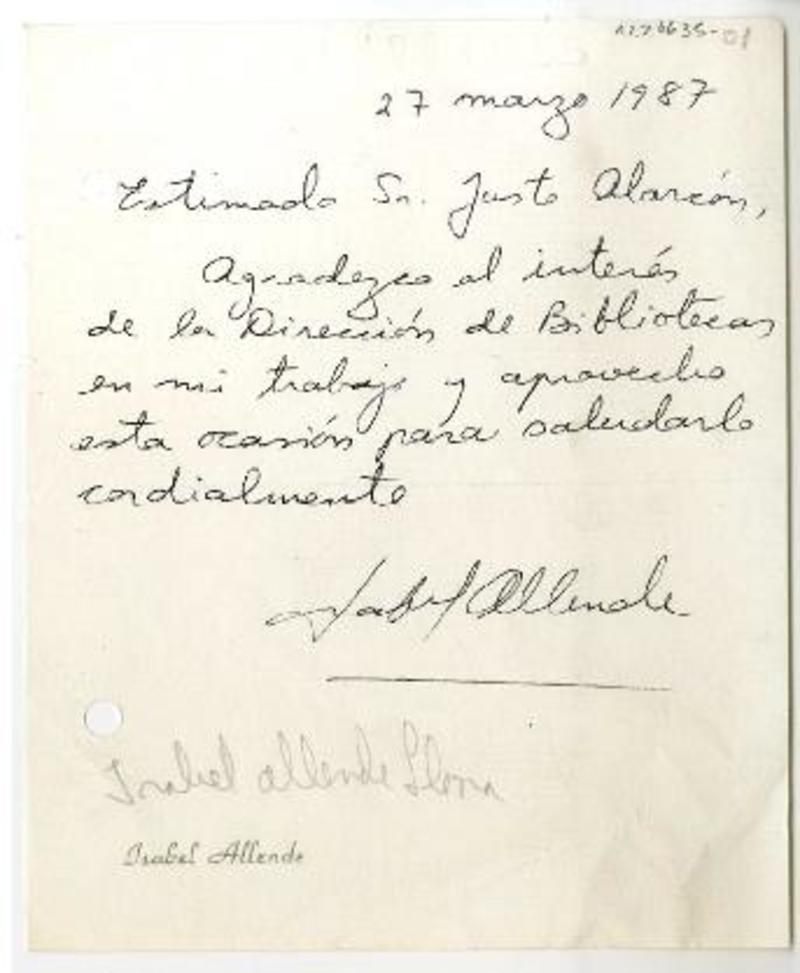 27 marzo 1987
Estimado Sr. Justo Alarcón,
Agradezco el interés
de la Dirección de Bibliotecas
en mi trabajo y aprovecho
esta ocasión para saludarlo
cordialmente
Isabel Allende
Isabel Allende Llona
Isabel Allende